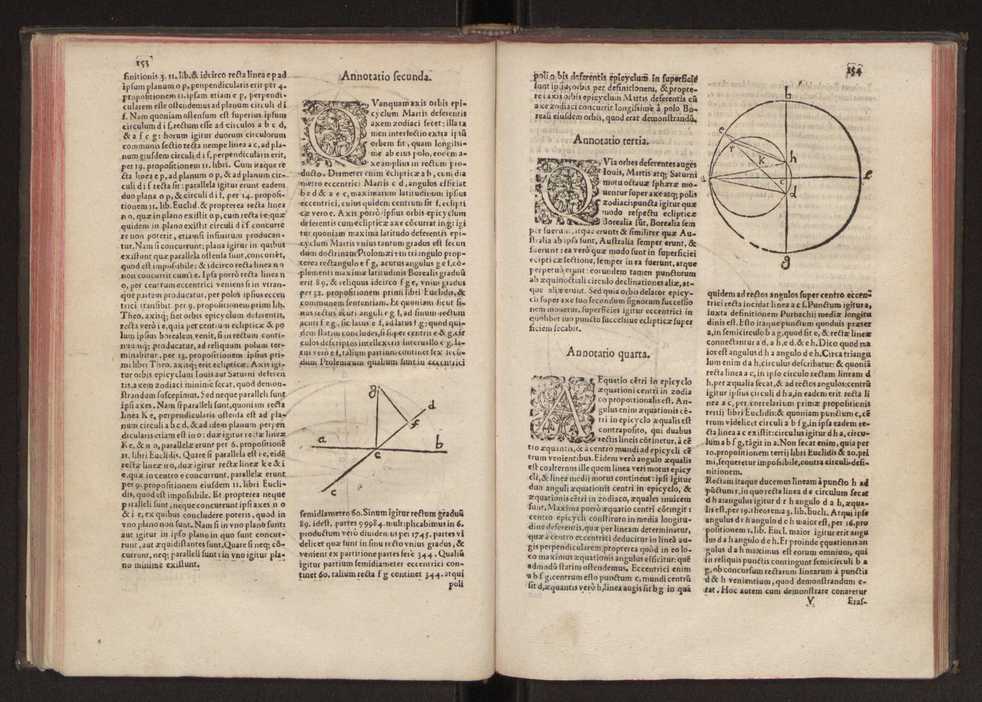 153
finitionis 3. 11. lib. & idcirco recta linea e p ad
ipsum planum o p, perpendicularis erit per 4.
propositionem 11. ipsam etiam e p, perpendi-
cularem esse ostendemus ad planum circuli d i
f. Nam quoniam ostensum est superius ipsum
circulum d i f, rectum esse ad circulos a b c d,
& a f c g: horum igitur duorum circulorum
communis sectio recta nempe linea a c, ad pla-
num eiusdem circuli d i f, perpendicularis erit,
per 19. propositionem 11. libri. Cum itaque re
cta linea e p, ad planum o p, & ad planum cir-
culi d i f recta sit: parallela igitur erunt eadem
duo plana o p, & circuli d i f, per 14. proposi-
tionem 11. lib. Euclid. & propterea recta linea
n o, quæ in plano existit o p, cum recta i e quæ
quidem in plano existit circuli d i f concurre
re non poterit, etiamsi in infinitum producan-
tur. Nam si concurrunt: plana igitur in quibus
existunt quæ parallela ostensa sunt, concurrēt,
quod est impossibile: & idcirco recta linea n o
non concurrit cum i e. Ipsa porrò recta linea n
o, per centrum eccentrici veniens si in vtran-
que partem producatur, per polos ipsius eccen
trici transibit per 9. propositionem primi lib.
Theo. axisq; siet orbis epicyclum deferentis,
recta verò i e, quia per centrum eclipticæ & po
lum ipsius borealem venit, si in rectum conti-
nuumq; producatur, ad reliquum polum ter-
minabitur, per 13. propositionem ipsius pri-
mi libri Theo. axisq; erit eclipticæ. Axis igi-
tur orbis epicyclum Iouis aut Saturni deferen
tis, axem zodiaci minimè secat, quod demon-
strandum susceperamus. Sed neque paralleli sunt
ipsi axes. Nam si paralleli sunt, quoniam recta
linea K e, perpendicularis ostensa est ad pla-
num circuli a b c d, & ad idem planum perpen
dicularis etiam est in o: duæ igitur rectæ lineæ
K e, & n o, parallelæ erunt per 6. propositionē
11. libri Euclidis. Quare si parallela est i e, eidē
rectæ lineæ n o, duæ igitur rectæ lineæ k e & i
e, quæ in centro e concurrunt, parallelæ erunt
per 9. propositionem eiusdem 11. libri Eucli-
dis, quod est impossibile. Et propterea neque
paralleli sunt, neque concurrunt ipsi axes n o
& i e, ex quibus concludere poteris, quod in
vno plano non sunt. Nam si in vno plano sunt:
aut igitur in ipso plano in quo sunt concur-
runt, aut æquidistantes sunt. Quare si neq; cō-
currunt, neq; paralleli sunt: in vno igitur pla-
no minimè existunt.
Annotatio secunda.
QVanquam axis orbis epi-
cyclum Martis deferentis
axem zodiaci secet: illa ta
men intersectio extra ipsū
orbem fit, quàm longissi-
mè ab eius polo, eodem a-
xe amplius in rectum pro-
ducto. Diameter enim eclipticæ a b, cum dia
metro eccentrici Martis c d, angulos efficiat
b e d & a e c, maximarum latitudinum ipsius
eccentrici, cuius quidem centrum sit f, eclipti
cæ vero e. Axis porrò ipsius orbis epicyclum
deferentis cum eclipticæ axe cōcurrat in g: igi
tur quoniam maxima latitudo deferentis epi-
cyclum Martis vnius tantum gradus est secun
dum doctrinam Ptolomæi: in triangulo prop-
terea rectangulo e f g, acutus angulus g e f, cō-
plementi maximæ latitudinis Borealis graduū
erit 89. & reliquus idcirco f g e, vnius gradus
per 32. propositionem primi libri Euclidis, &
communem sententiam. Et quoniam sicut si-
nus rectus acuti anguli e g f, ad sinum rectum
acuti f e g, sic latus e f, ad latus f g: quod qui-
dem statim concludes, si super centris e & g, cir
culos descriptos intellexeris interuallo e g. la-
tus verò e f, talium partium continet sex iuxta
dum Ptolemæum qualium sunt in eccentrici
g d f a e b c
semidiametro 60. Sinum igitur rectum graduū
89. idest, partes 9998 4. multiplicabimus in 6.
productum verò diuidemus per 1745. partes vi
delicet quæ sunt in sinu recto vnius gradus, &
venient ex partitione partes ferè 344. Qualiū
igitur partium semidiameter eccentrici con-
tinet 60. talium recta f g continet 344. atqui
poli
154
poli orbis deferentis epicyclum in superficie
sunt ipsius orbis per definitionem, & propte-
rea axis orbis epicyclum Martis deferentis cū
axe zodiaci concurrit longissimè à polo Bo-
reali eiusdem orbis, quod erat demonstrandū.
Annotatio tertia.
QVia orbes deferentes auges
Iouis, Martis atq; Saturni
motu octauæ sphæræ mo-
uentur super axe atq; polis
zodiaci: puncta igitur quæ
modo respectu eclipticæ
Borealia sūt, Borealia sem
per fuerunt, atque erunt: & similiter quæ Au-
stralia ab ipsa sunt, Australia semper erunt, &
fuerunt: ea verò quæ modo sunt in superficiei
eclipticæ sectione, semper in ea fuerunt, atque
perpetuò erunt: eorundem tamen punctorum
ab æquinoctiali circulo declinationes aliæ, at-
que aliæ erunt. Sed quia orbis deferēs epicy-
clū super axe suo secundum signorum successio
nem mouetur, superficiei igitur eccentrici in
quolibet suo puncto successiuè eclipticæ super
ficiem secabit.
Annotatio quarta.
AEquatio cētri in epicyclo
æquationi centri in zodia
co proportionalis est. An-
gulus enim æquationis cē-
tri in epicyclo æqualis est
contraposito, qui duabus
rectis lineis cōtinetur, à cē
tro æquantis, & à centro mundi ad epicycli cē
trum venientibus. Eidem verò angulo æqualis
est coalternus ille quem linea veri motus epicy
cli, & linea medij motus continent: ipsi igitur
duo anguli æquationis centri in epicyclo, &
æquationis cētri in zodiaco, æquales inuicem
sunt. Maxima porrò æquatio centri cōtingit
centro epicycli constituto in media longitu-
dine deferentis, quæ per lineam determinatur,
quæ à centro eccentrici deducitur in lineā au-
gis perpendicularem: propterea quòd in eo lo-
co maximus æquationis angulus efficitur: que
admodū statim ostendemus. Eccentrici enim
a b f g, centrum esto punctum c, mundi centrū
sit d, æquantis verò h, linea augis sit b g in quā
b e r k h a c f d g
quidem ad rectos angulos super centro eccentri
trici recta incidat linea a c f. Punctum igitur a,
iuxta definitionem Purbachij mediæ longitu
dinis est. Esto itaque punctum quoduis præter
a, in semicirculo b a g, quod sit e, & rectæ lineæ
connectantur a d, a h, e d, & e h. Dico quod ma
ior est angulus d h a angulo d e h. Circa triangu
lum enim d a h, circulus describatur: & quoniā
recta linea a c, in ipso circulo rectam lineam d
h, per æqualia secat, & ad rectos angulos: centrū
igitur ipsius circuli d h a, in eadem erit recta li
nea a c, per correlarium primæ propositionis
tertij libri Euclidis: & quoniam punctum c, cē
trum videlicet circuli a b f g, in ipsa eadem re-
cta linea a c existit: circulus igitur d h a, circu-
lum a b f g, tāgit in a. Non secat enim, quia per
10. propositionem tertij libri Euclidis & 20. pri
mi, sequeretur impossibile, contra circuli defi-
nitionem.
Rectam itaque ducemus lineam à puncto h ad
pūctum r, in quo recta linea d e circulum secat
d h a: angulus igitur d r h angulo d a h, æqua-
lis est, per 19. theorema 3. lib. Eucli. Atqui ipse
angulus d r h angulo d e h maior est, per 16. pro
positionem 1. lib. Eucl. maior igitur erit angu
lus d a h angulo d e h. Et proinde æquationis an
gulus d a h maximus est eorum omnium, qui
in reliquis punctis contingunt semicirculi b a
g, ob concursum rectarum linearum à punctis
d & h venientium, quod demonstrandum e-
rat. Hoc autem cum demonstrare conaretur
V Eras-